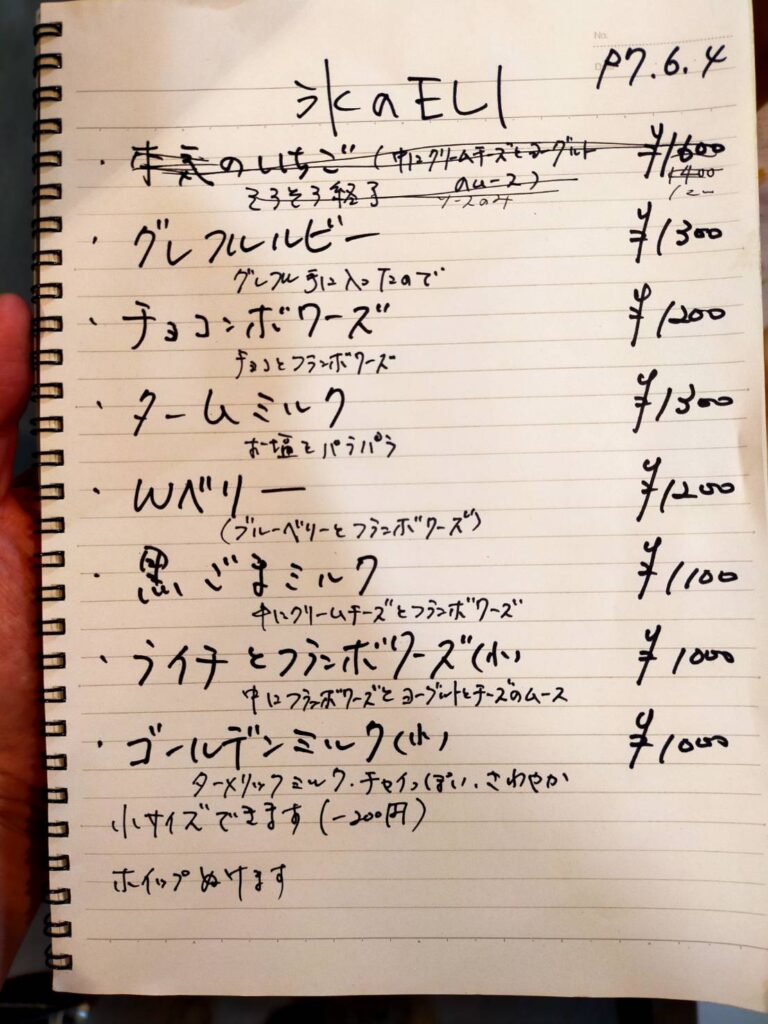 No.
P7.6.4
氷のELI
・本気のいちご(中にクリームチーズとヨーグルト ¥1600
そろそろ終了 のムース) 1400
ソースのみ 1200
・グレフルルビー ¥1300
グレフル手に入ったので
・チョコンボワーズ ¥1200
チョコとフランボワーズ
・タームミルク ¥1300
お塩をパラパラ
・Wベリー ¥1200
(ブルーベリーとフランボワーズ)
・黒ごまミルク ¥1100
中にクリームチーズとフランボワーズ
・ライチとフランボワーズ(小) ¥1000
中にフランボワーズとヨーグルトとチーズのムース
・ゴールデンミルク(小) ¥1000
ターメリックミルク.チャイっぽい.さわやか
小サイズできます(-200円)
ホイップぬけます